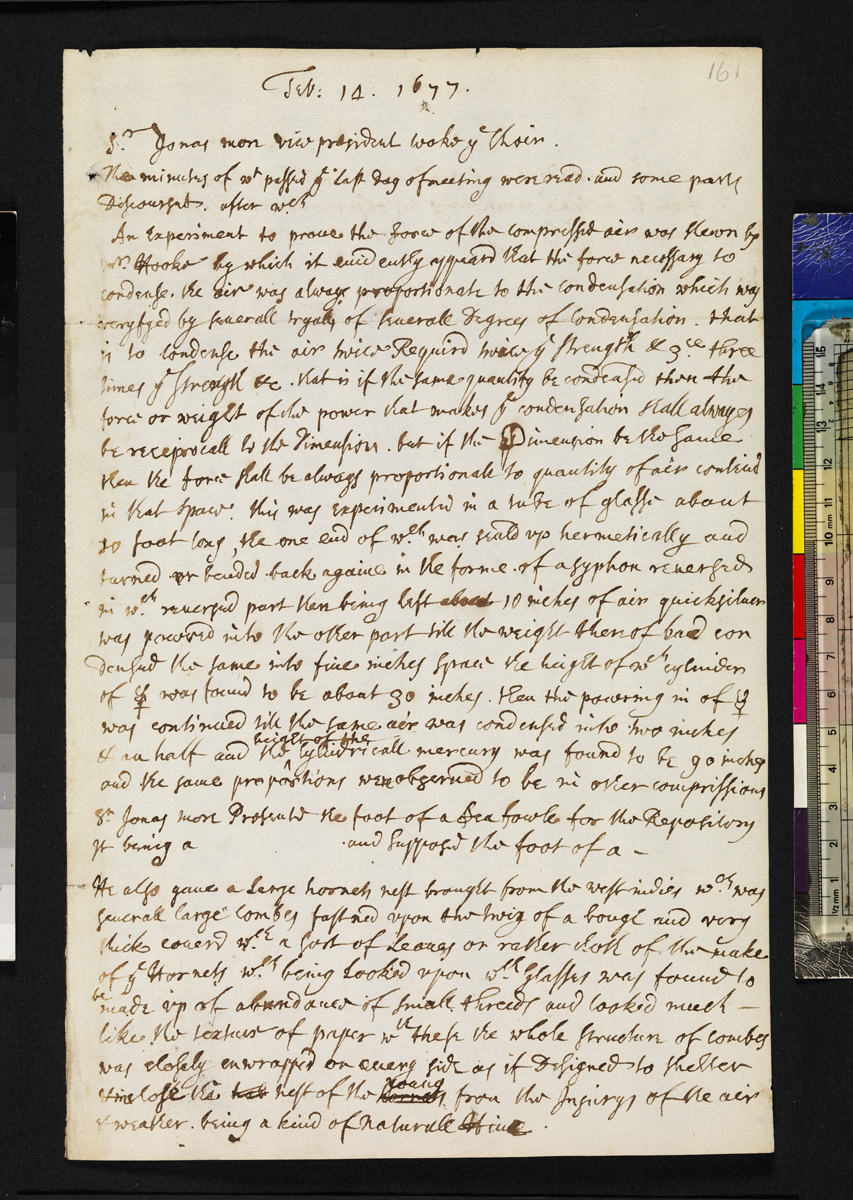 161
Feb: 14. 1677.
Sr. Jonas more vice president tooke ye Chair.
The minutes of wt passed ye last day of meeting were read. and some parts
Discoursed. after wch
An Experiment to prove the force of the compressed air was shewn by
mr. Hooke by which it evidently appeard that the force necessary to
condense. the air was always proportionate to the condensation which was
veryfyed by severall tryalls of severall Degrees of Condensation. that
is to condense the air twice Required twice ye strength & 3ce three
times ye strength &c. that is if the same quantity be condensed then the
force or weight of the power that makes ye condensation shall always
be reciprocall to the Dimensions. but if the Dimension be the same
then the force shall be always proportionate to quantity of air containd
in that space. this was experimented in a tube of glasse about
10 foot long, the one end of wch was seald up hermetically and
turned or bended back againe in the forme of a syphon reversed
in wch reversed part then being left about 10 inches of air quicksilver
was powered into the other part till the weight thereof had con
densed the same into five inches space the height of wch cylinder
of ☿ was found to be about 30 inches. then the powering in of ☿
was continued till the same air was condensed into two inches
& an half and the height of the Cylindricall mercury was found to be 90 inches
and the same proportions were observed to be in other compressions
Sr. Jonas more Presented the foot of a Sea fowle for the Repository
It being a and supposed the foot of a -
He also gave a Large hornets nest brought from the west indies wch was
severall large combes fastned upon the twig of a bough and very
thick coverd wth a sort of Leaves or rather cloth of the make
of ye Hornets wch being Looked upon wth glasses was found to
be made up of abundance of small threeds and looked much -
like the texture of paper wth these the whole structure of combes
was closely enwrapped on every side as if Designed to shelter
& inclose the nest of the young hornets from the Injurys of the air
& weather. being a kind of naturall Hive.